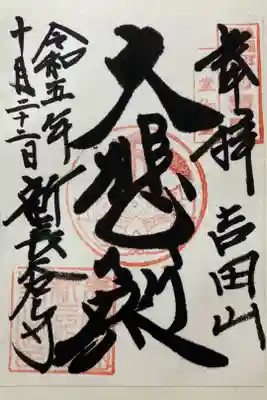 奉拝 吉田山
大悲殿
令和五年
十月二十二日 新長谷寺